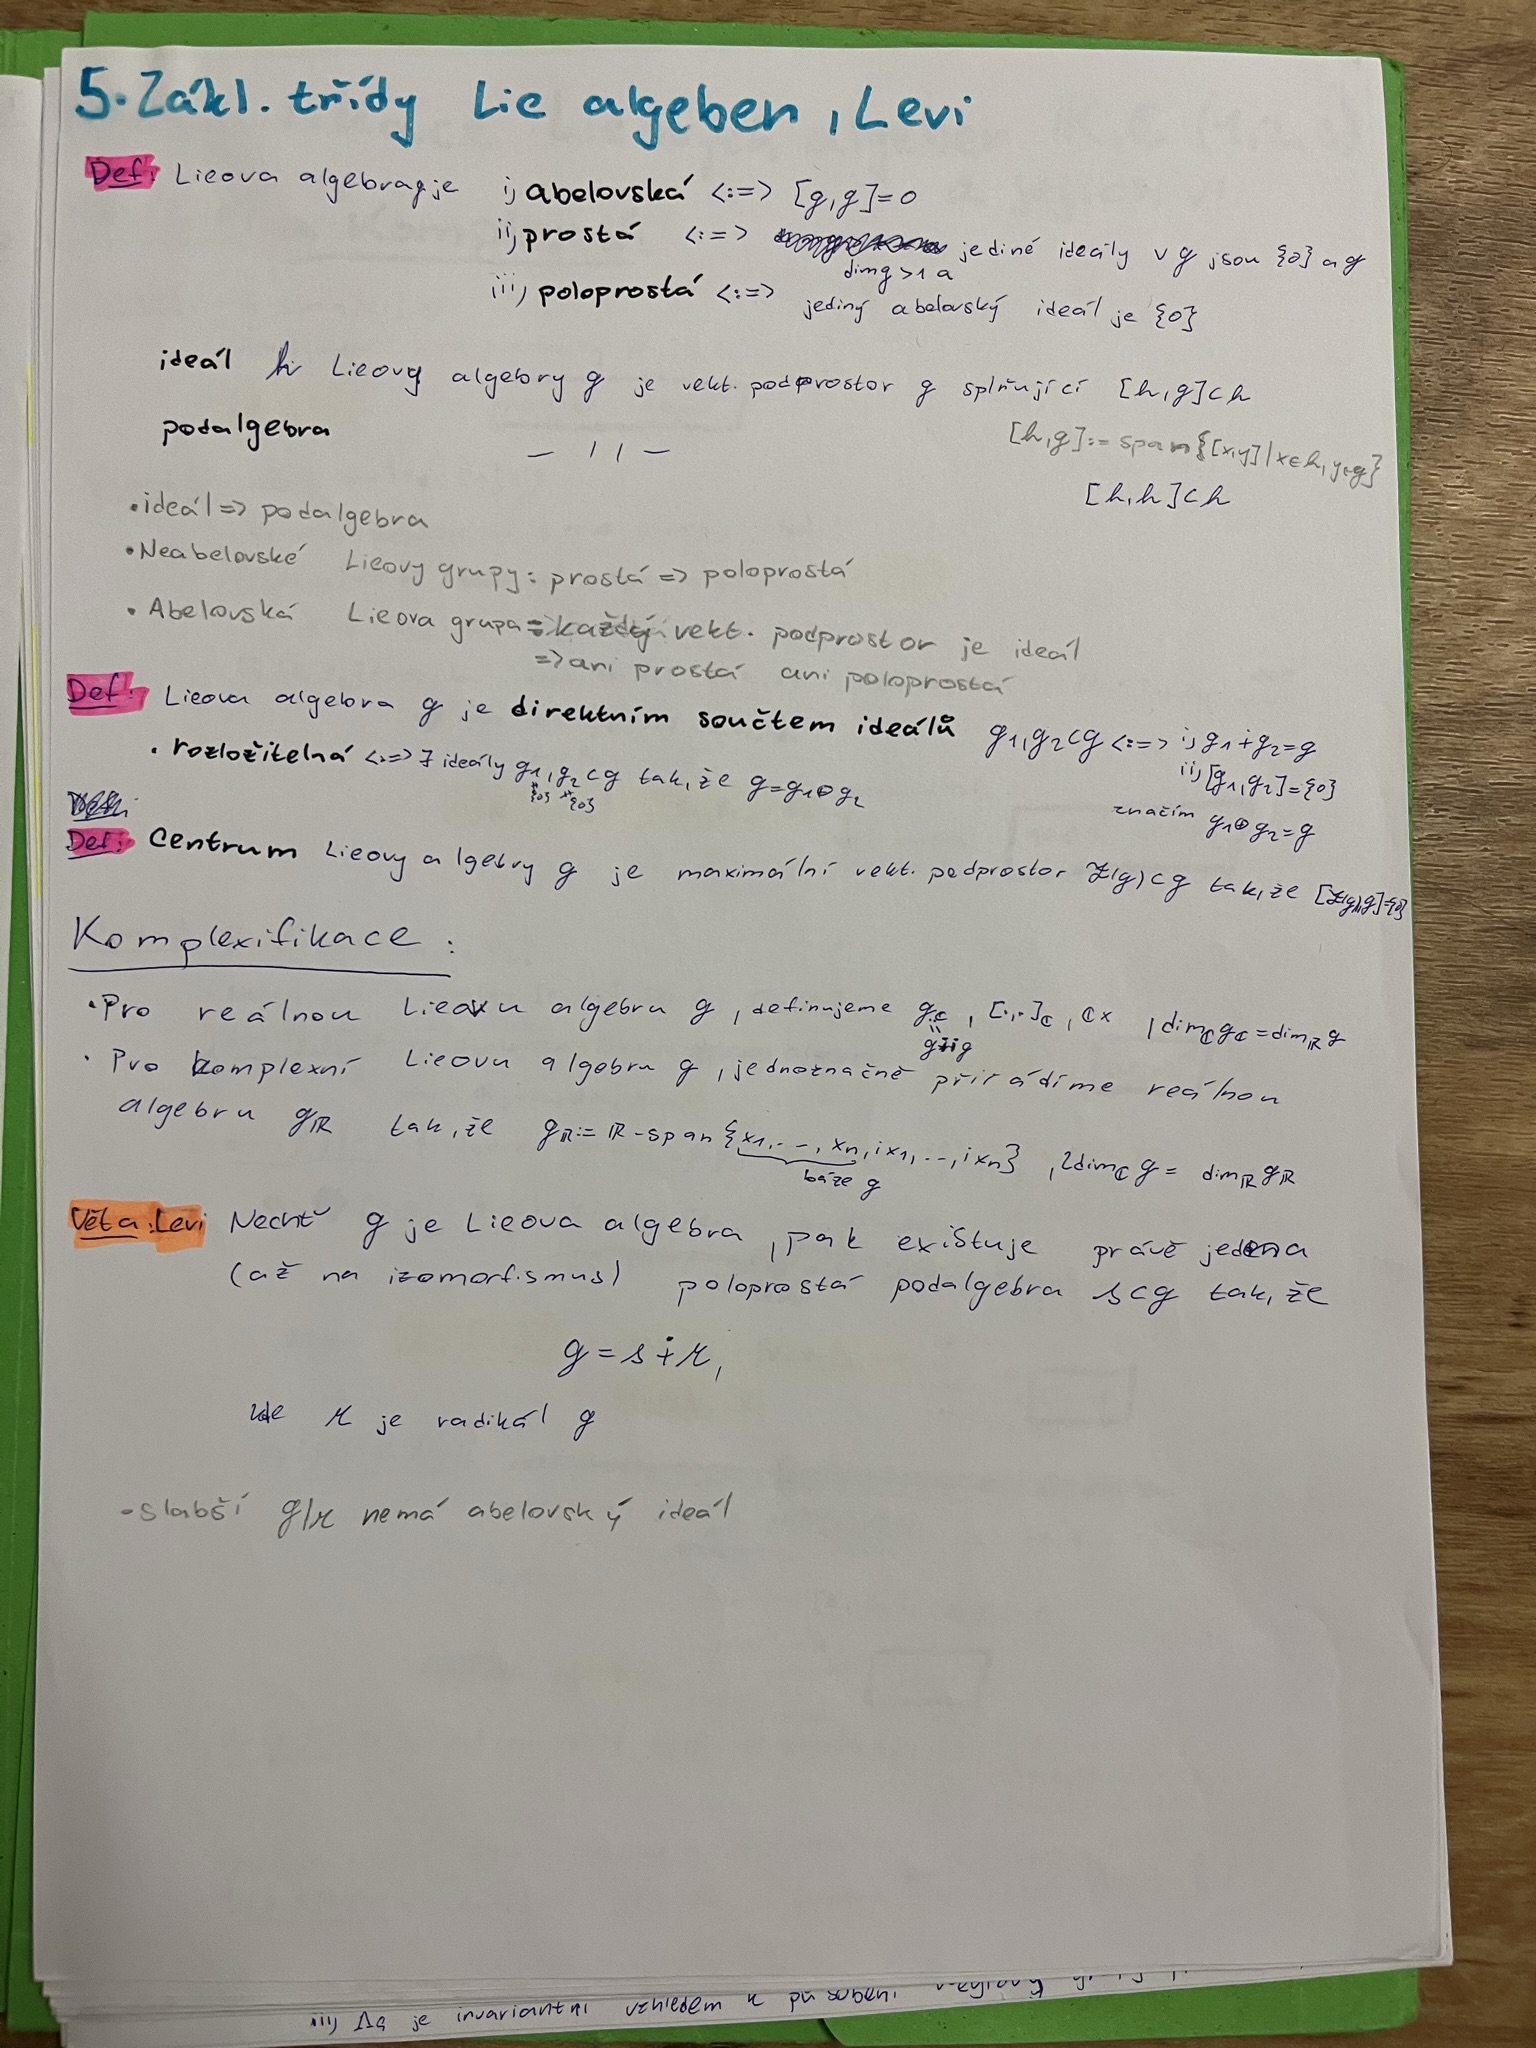 5. Zákl. třídy Lie algeber, Levi
Def: Lieova algebra g je i, abelovská <:=> [g,g]=0
ii, prostá <:=> jediné ideály v g jsou {0} a g
dim g > 1 a
iii, poloprostá <:=> jediný abelovský ideál je {0}
ideál h Lieovy algebry g je vekt. podprostor g splňující [h,g]⊂h
[h,g]:=span{[x,y]|x∈h,y∈g}
podalgebra — 11 — [h,h]⊂h
•ideál=> podalgebra
•Neabelovské Lieovy grupy: prostá => poloprostá
• Abelovská Lieova grupa: každý vekt. podprostor je ideál
=> ani prostá ani poloprostá
Def: Lieova algebra g je direktním součtem ideálů g1,g2⊂g <:=> i, g1+g2=g
ii, [g1,g2]={0}
značím g1⊕g2=g
• rozložitelná <:=> ∃ ideály g1,g2⊂g tak, že g=g1⊕g2
≠{0} ≠{0}
Def: Centrum Lieovy algebry g je maximální vekt. podprostor Z(g)⊂g tak, že [Z(g),g]={0}
Komplexifikace:
•Pro reálnou Lieovu algebru g, definujeme g_ℂ, [.,.]_ℂ, ℂx, dim_ℂ g_ℂ=dim_ℝ g
g∔ig
• Pro komplexní Lieovu algebru g, jednoznačně přiřadíme reálnou
algebru g_ℝ tak, že g_ℝ:=ℝ-span{x1,..., xn, ix1,..., ixn}, 2dim_ℂ g = dim_ℝ g_ℝ
báze g
Věta: Levi Nechť g je Lieova algebra, pak existuje právě jedna
(až na izomorfismus) poloprostá podalgebra s⊂g tak, že
g = s ∔ r,
kde r je radikál g
•slabší g/r nemá abelovský ideál
iii, Δg je invariantní vzhledem k působení